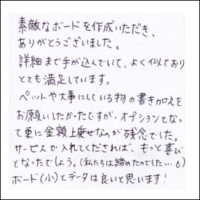 素敵なボードを作成いただき、
ありがとうございました。
詳細まで手が込んでいて、よく似ており
とても満足しています。
ペットや大事にしている物の書き加えを
お願いしたかったですが、オプションとなっ
て更に金額上乗せなのが残念でした。
サービスで入れてくだされば、もっと喜んだ
となったでしょう。(私たちは諦めたのでした…6)
ボード(小)とデータは良いと思います!